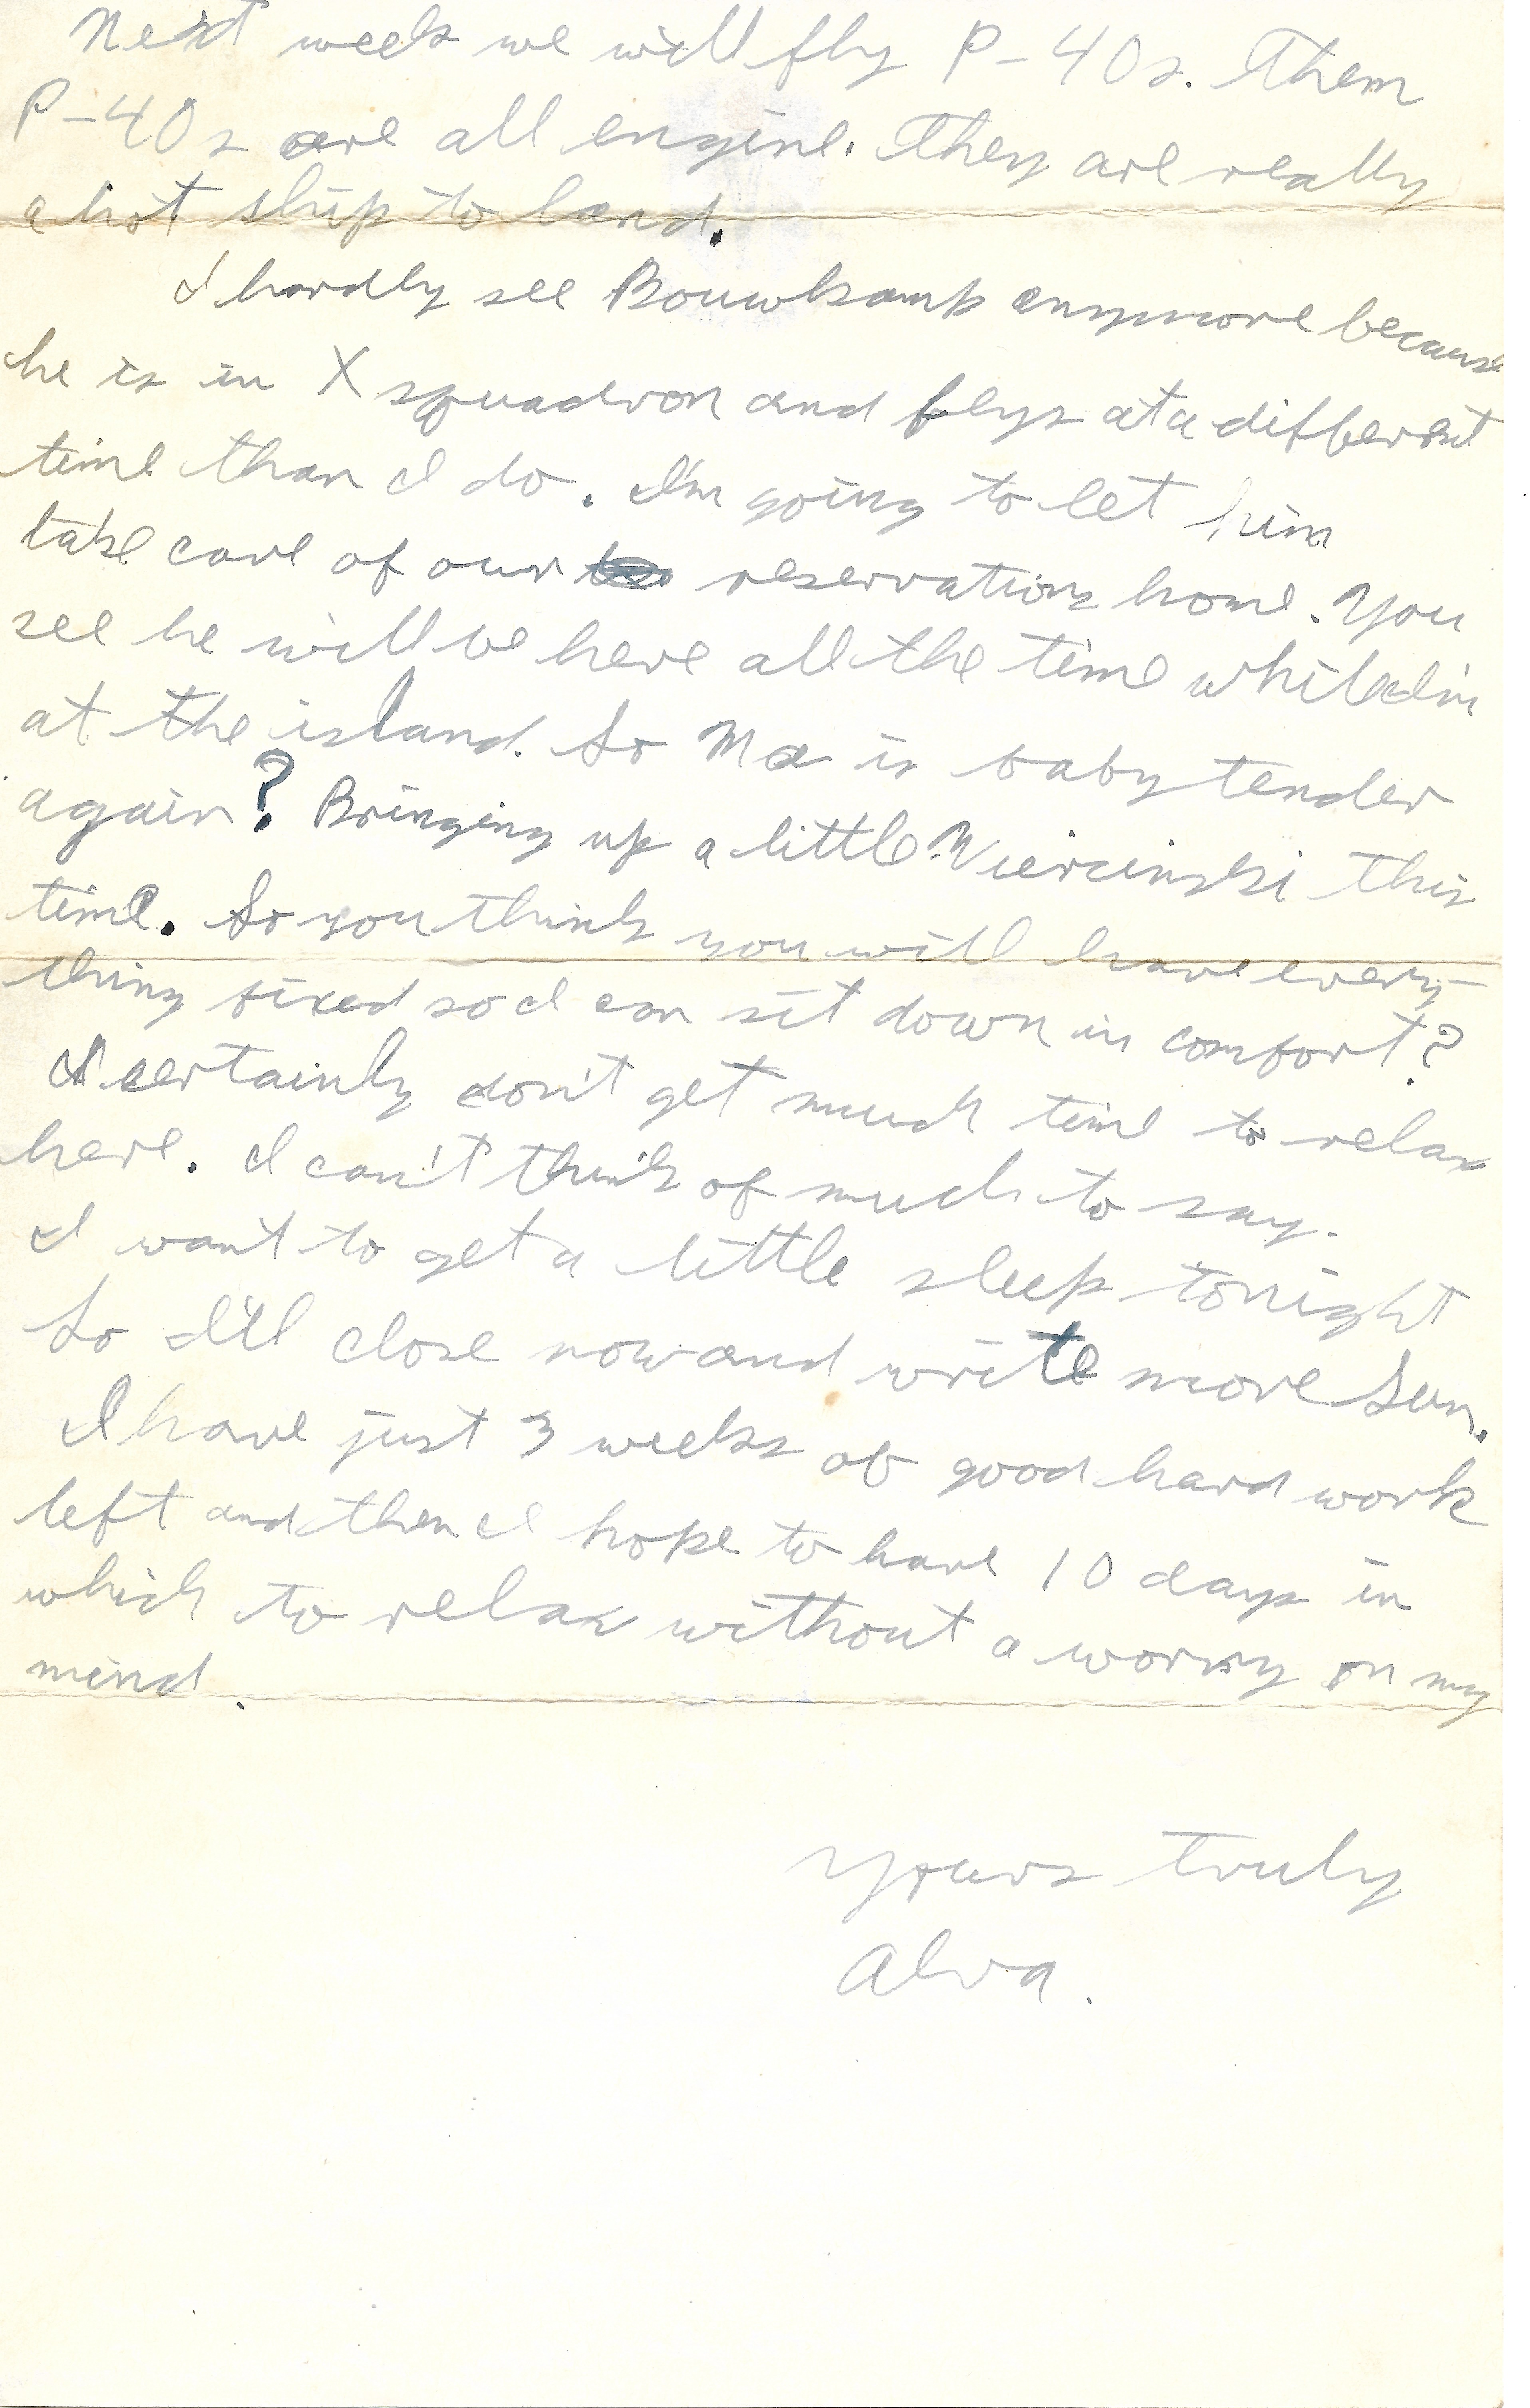 Next week we will fly P-40s. Them
P-40s are all engine. They are really
a hot ship to land.
I hardly see Bouwkamp anymore because
he is in X squadron and flys at a different
time than I do. I'm going to let him
take care of our reservations home. You
see he will be here all the time while I'm
at the island. So Ma is baby tender
again? Bringing up a little Wiercinski this
time. So you think you will have every-
thing fixed so I can sit down in comfort?
I certainly don't get much time to relax
here. I can't think of much to say.
I want to get a little sleep tonight
So I'll close now and write more Sun.
I have just 3 weeks of good hard work
left and then I hope to have 10 days in
which to relax without a worry on my
mind.
Yours truly
Alva.